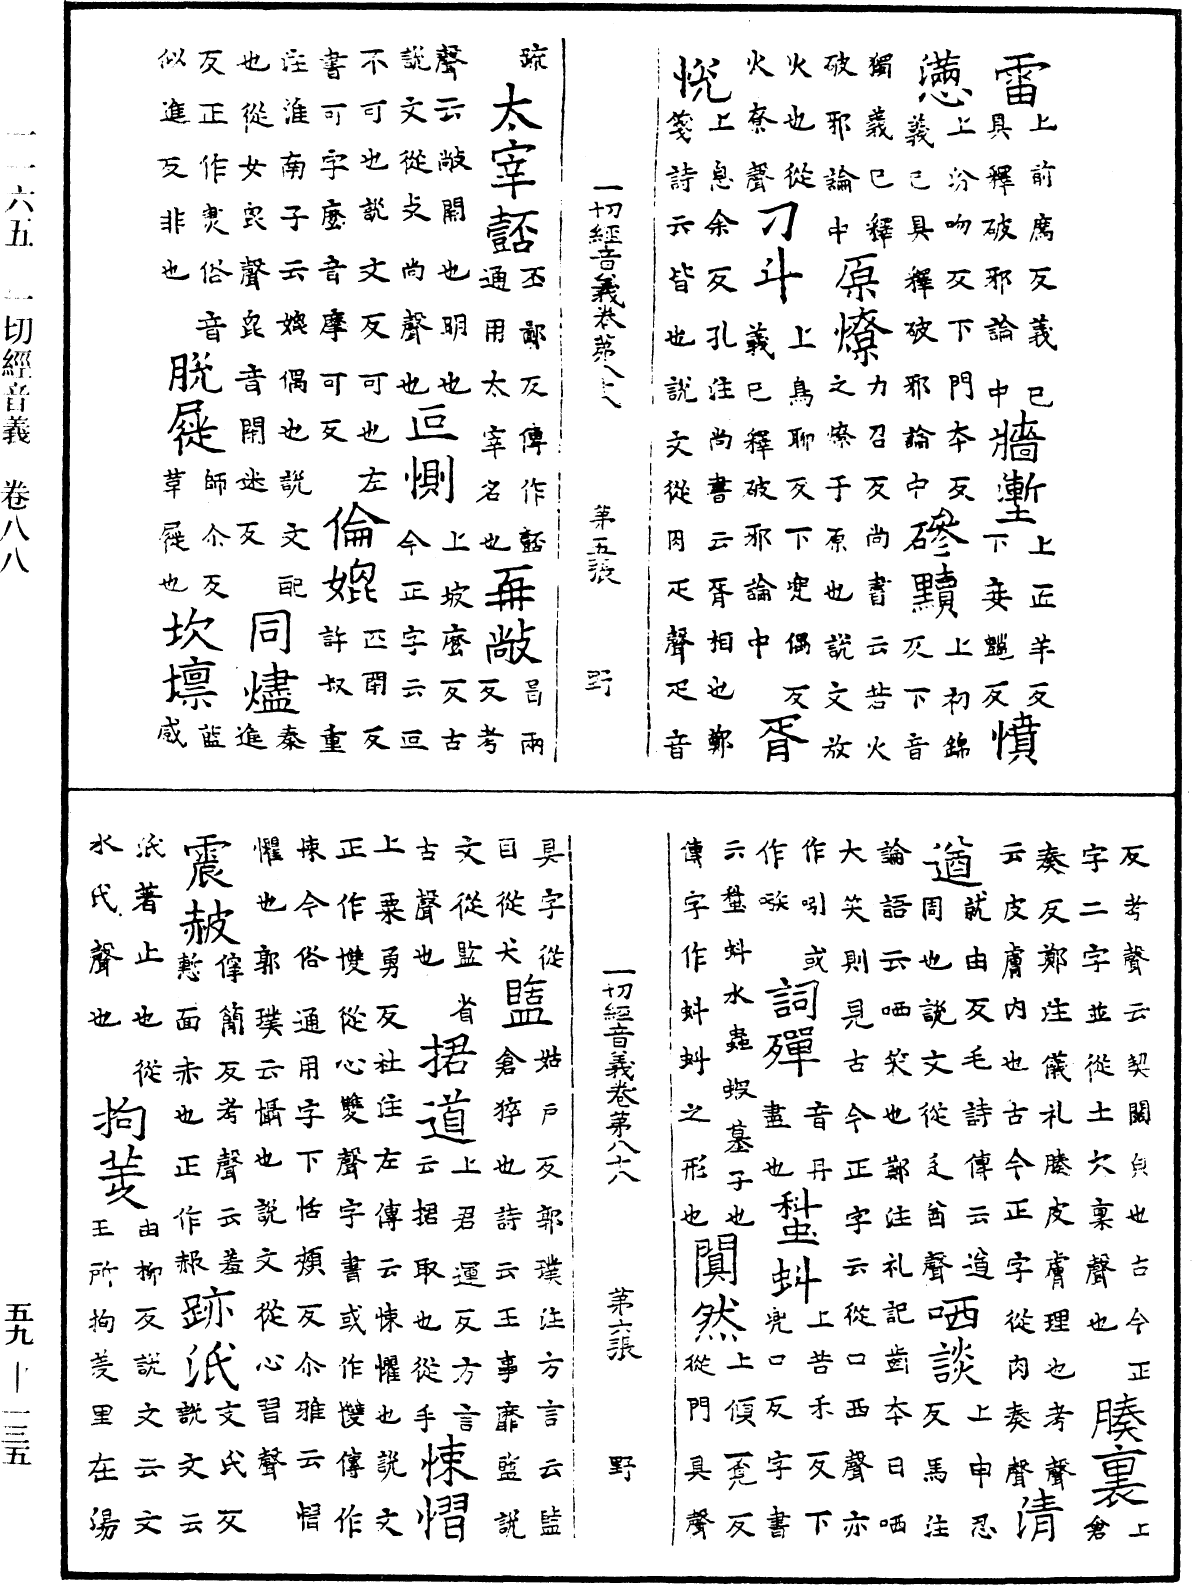 一一六五　一切經音義　卷八八
五九—一三五
雷上前席反義已
具釋破邪論中牆塹上匠羊反
下妾豔反憤
懣上汾吻反下門本反
義已具釋破邪論中磣黷上初錦
反下音
獨義已釋
破邪論中原燎力召反尚書云若火
之燎于原也說文放
火也從
火尞聲刁斗上鳥聊反下兜偶反
義已釋破邪論中胥
悅上息余反孔注尚書云胥相也鄭
箋詩云皆也說文從肉疋聲疋音
一切經音義卷第八十八　第五張　野
疏太宰嚭丕鄙反傳作嚭
通用太宰名也再敞昌兩
反考
聲云敞開也明也
說文從攴尚聲也叵惻上坡麼反古
今正字云叵
不可也說文反可也左
書可字麼音摩可反倫媲匹閉反
許叔重
注淮南子云媲偶也說文配
也從女𣬉聲𣬉音閉迷反同燼秦
進
反正作㶳俗音
似進反非也脫屣師尒反
草屣也坎壈藍
感
反考聲云契闊皃也古今正
字二字並從土欠稟聲也腠裏上
倉
奏反鄭注儀礼腠皮膚理也考聲
云皮膚內也古今正字從肉奏聲清
遒就由反毛詩傳云遒
周也說文從辵酋聲哂談上申忍
反馬注
論語云哂笑也鄭注礼記齒本曰哂
大笑則見古今正字云從口西聲亦
作吲或
作㕧詞殫音丹
盡也蝌蚪上苦禾反下
兜口反字書
云蝌蚪水蟲蝦蟇子也
傳字作蚪蚪之形也闃然上傾覓反
從門具聲
一切經音義卷第八十八　第六張　野
具字從
目從犬盬姑戶反郭璞注方言云盬
倉猝也詩云王事靡盬說
文從監省
古聲也捃道上君運反方言
云捃取也從手悚慴
上粟勇反杜注左傳云悚懼也說文
正作愯從心雙聲字書或作㩳傳作
悚今俗通用字下恬頰反尒雅云慴
懼也郭璞云懾也說文從心習聲
震赧㑩簡反考聲云羞
慙面赤也正作赧跡泜支氏反
說文云
泜著止也從
水氏聲也拘羑由柳反說文云文
王所拘羑里在湯